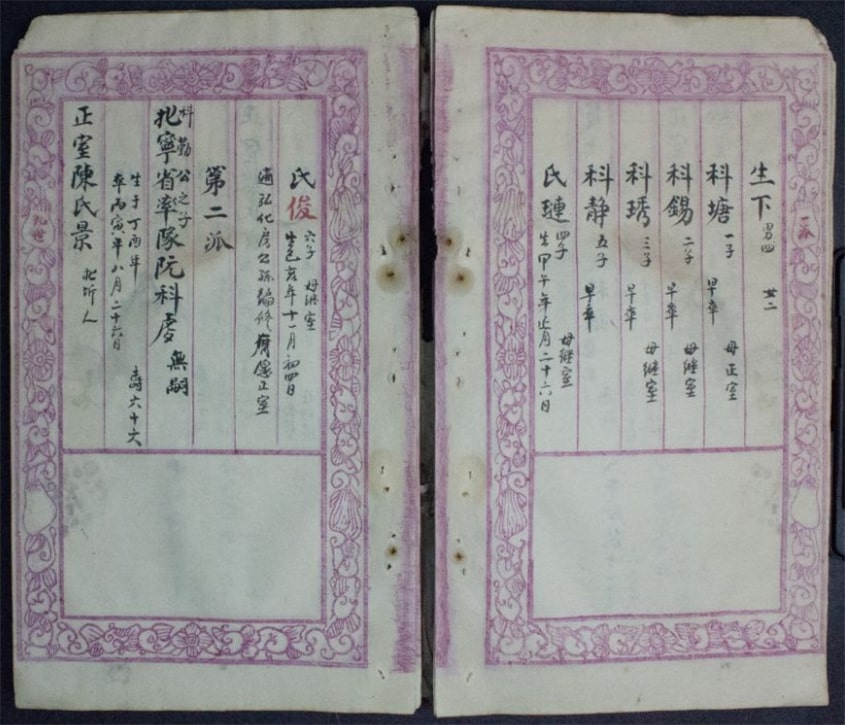 生下 男四 廿二
科塘 一子 早卒 母正室
科錫 二子 早卒 母継室
科琇 三子 早卒 母継室
科静 五子 早卒
氏璉 四子 生甲午年正月二十六日 母継室
氏俊 六子 母継室 生乙亥年十一月初四日
適弘化房公孫編修 正室
第二派
科勤公之子
北寧省率隊阮科虔 無嗣
生于丁酉年
卒丙寅年八月二十六日 壽六十六
正室陳氏景 北圻人